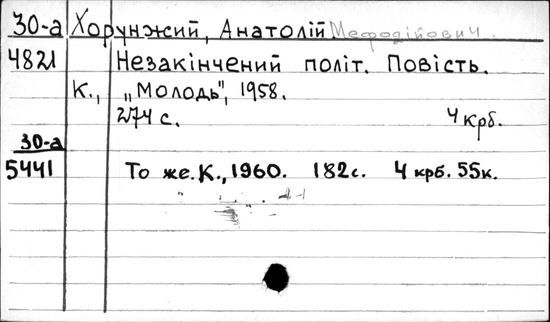 30-а Хорунжий, Анатолій Мефодійович.
4821 Незакінчений політ. Повість.
К., „Молодь", 1958.
274 с. 4 крб.
30-а
5441 То же. К., 1960. 182 с. 4 крб. 55к.